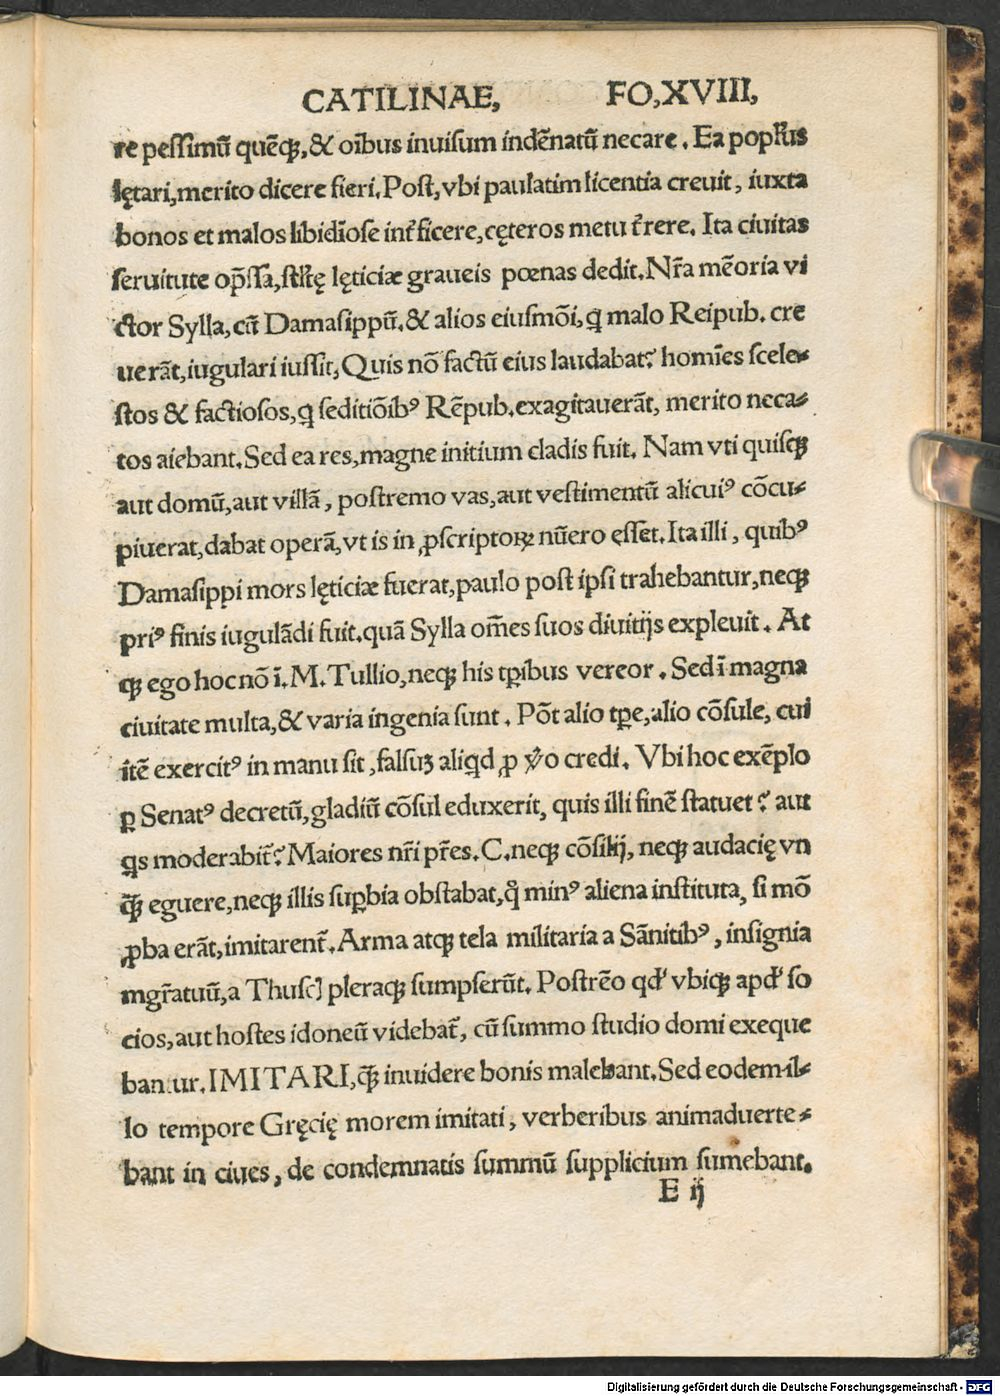 CATILINAE, FO,XVIII,
re peſſimū quēqꝫ, & oībus inuiſum indēnatū necare. Ea popl̄us
lętari, merito dicere fieri. Poſt, vbi paulatim licentia creuit, iuxta
bonos et malos libidīoſe int̄ficere, cęteros metu t̄rere. Ita ciuitas
ſeruitute op̄ſſa, ſtl̄tę lęticiæ graueis pœnas dedit. Nr̄a mēoria vi
ctor Sylla, cū Damaſippū. & alios eiuſmōi, q̄ malo Reipub. cre
uerāt, iugulari iuſſit, Quis nō factū eius laudabat? homīes ſcele⸗
ſtos & factioſos, q̄ ſeditiōibꝰ Rēpub. exagitauerāt, merito neca⸗
tos aiebant. Sed ea res, magne initium cladis fuit. Nam vti quiſqꝫ
aut domū, aut villā, poſtremo vas, aut veſtimentū alicuiꝰ cōcu⸗
piuerat, dabat operā, vt is in ꝓſcriptoꝝ nūero eſſet. Ita illi, quibꝰ
Damaſippi mors lęticiæ fuerat, paulo poſt ipſi trahebantur, neqꝫ
priꝰ finis iugulādi fuit. quā Sylla om̄es ſuos diuitijs expleuit. At
qꝫ ego hoc nō ī. M. Tullio, neqꝫ his tꝑibus vereor. Sed ī magna
ciuitate multa, & varia ingenia ſunt. Pōt alio tꝑe, alio cōſule, cui
itē exercitꝰ in manu ſit, falſuꝫ aliqd ꝓ ꝟo credi. Vbi hoc exēplo
ꝑ Senatꝰ decretū, gladiū cōſul eduxerit, quis illi finē ſtatuet? aut
q̄s moderabit̄? Maiores nr̄i pr̄es. C. neqꝫ cōſilij, neqꝫ audacię vn
qꝫ̄ eguere, neqꝫ illis ſuꝑbia obſtabat, qͦ minꝰ aliena inſtituta, ſi mō
ꝓba erāt, imitarent̄. Arma atqꝫ tela militaria a Sānitibꝰ, inſignia
mgr̄atuū, a Thuſcꝭ pleraqꝫ ſumpſerūt. Poſtrēo qd' vbiqꝫ apd' ſo
cios, aut hoſtes idoneū videbat̄, cū ſummo ſtudio domi exeque
bantur. IMITARI, qꝫ̄ inuidere bonis malebant. Sed eodem il⸗
lo tempore Gręcię morem imitati, verberibus animaduerte⸗
bant in ciues, de condemnatis ſummū ſupplicium ſumebant.
E ij
Digitalisierung gefördert durch die Deutsche Forschungsgemeinschaft - DFG